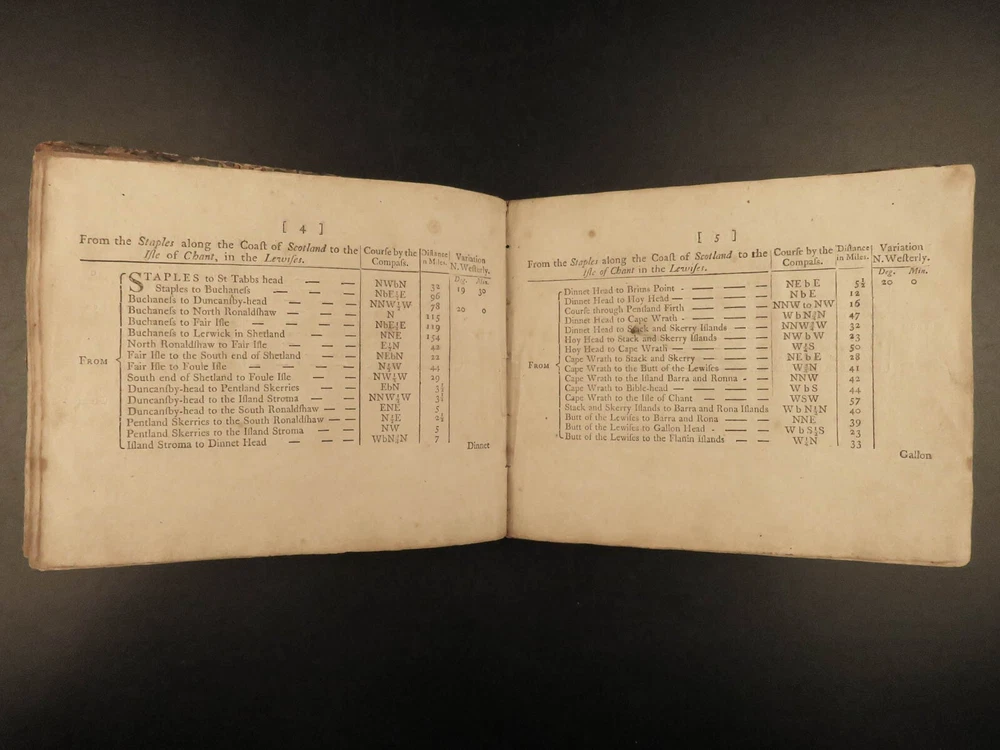 [ 4 ]
From the Staples along the Coaſt of Scotland to the Iſle of Chant, in the Lewiſes. | Courſe by the Compaſs. | Diſtance in Miles. | Variation N. Weſterly.
Deg. Min.
FROM
STAPLES to St Tabbs head — — NWbN 32 19 30
Staples to Buchaneſs — — — 96
Buchaneſs to Duncanſby-head — — 78 20 0
Buchaneſs to North Ronaldſhaw — — N 115
Buchaneſs to Fair Iſle — — — — 119
Buchaneſs to Lerwick in Shetland — — NNE 154
North Ronaldſhaw to Fair Iſle — — 48
Fair Iſle to the South end of Shetland — NEbN 22
Fair Iſle to Foule Iſle — — — — 44
South end of Shetland to Foule Iſle — — 29
Duncanſby-head to Pentland Skerries — EbN
Duncanſby-head to the Iſland Stroma — —
Duncanſby-head to the South Ronaldſhaw — — ENE 5
Pentland Skerries to the South Ronaldſhaw — —
Pentland Skerries to the Iſland Stroma — — NW 5
Iſland Stroma to Dinnet Head — — — 7
Dinnet
[ 5 ]
From the Staples along the Coaſt of Scotland to the Iſle of Chant in the Lewiſes. | Courſe by the Compaſs. | Diſtance in Miles. | Variation N. Weſterly.
Deg. Min.
FROM
Dinnet Head to Brims Point - — — — NE b E 20 0
Dinnet Head to Hoy Head — — — — N b E 12
Courſe through Pentland Firth — — — NNW to NW 16
Dinnet Head to Cape Wrath - — — — 47
Dinnet Head to Stack and Skerry Iſlands — — 32
Hoy Head to Stack and Skerry Iſlands — — NW b W 23
Hoy Head to Cape Wrath — — — — 50
Cape Wrath to Stack and Skerry — — — NE b E 28
Cape Wrath to the Butt of the Lewiſes — — 41
Cape Wrath to the Iſland Barra and Ronna - — NNW 42
Cape Wrath to Bible-head — — — — W b S 44
Cape Wrath to the Iſle of Chant — — — WSW 57
Stack and Skerry Iſlands to Barra and Rona Iſlands 40
Butt of the Lewiſes to Barra and Rona — — NNE 39
Butt of the Lewiſes to Gallon Head - — — 23
Butt of the Lewiſes to the Flanſin Iſlands — — 33
Gallon